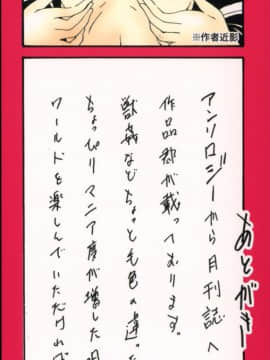 ※作者近影
あとがきー
アンソロジーから月刊誌へ
作品群が載っております。
獣姦などちょっと毛色の違った
ちょっぴりマニア度が増した
ワールドを楽しんでいただければ